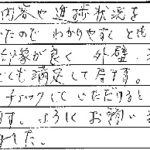 内容や進捗状況を
たので わかりやすく とも
印象が良く 外壁
ても満足して居ます。
チェックしていただけると
ます。よろしくお願い
ました。